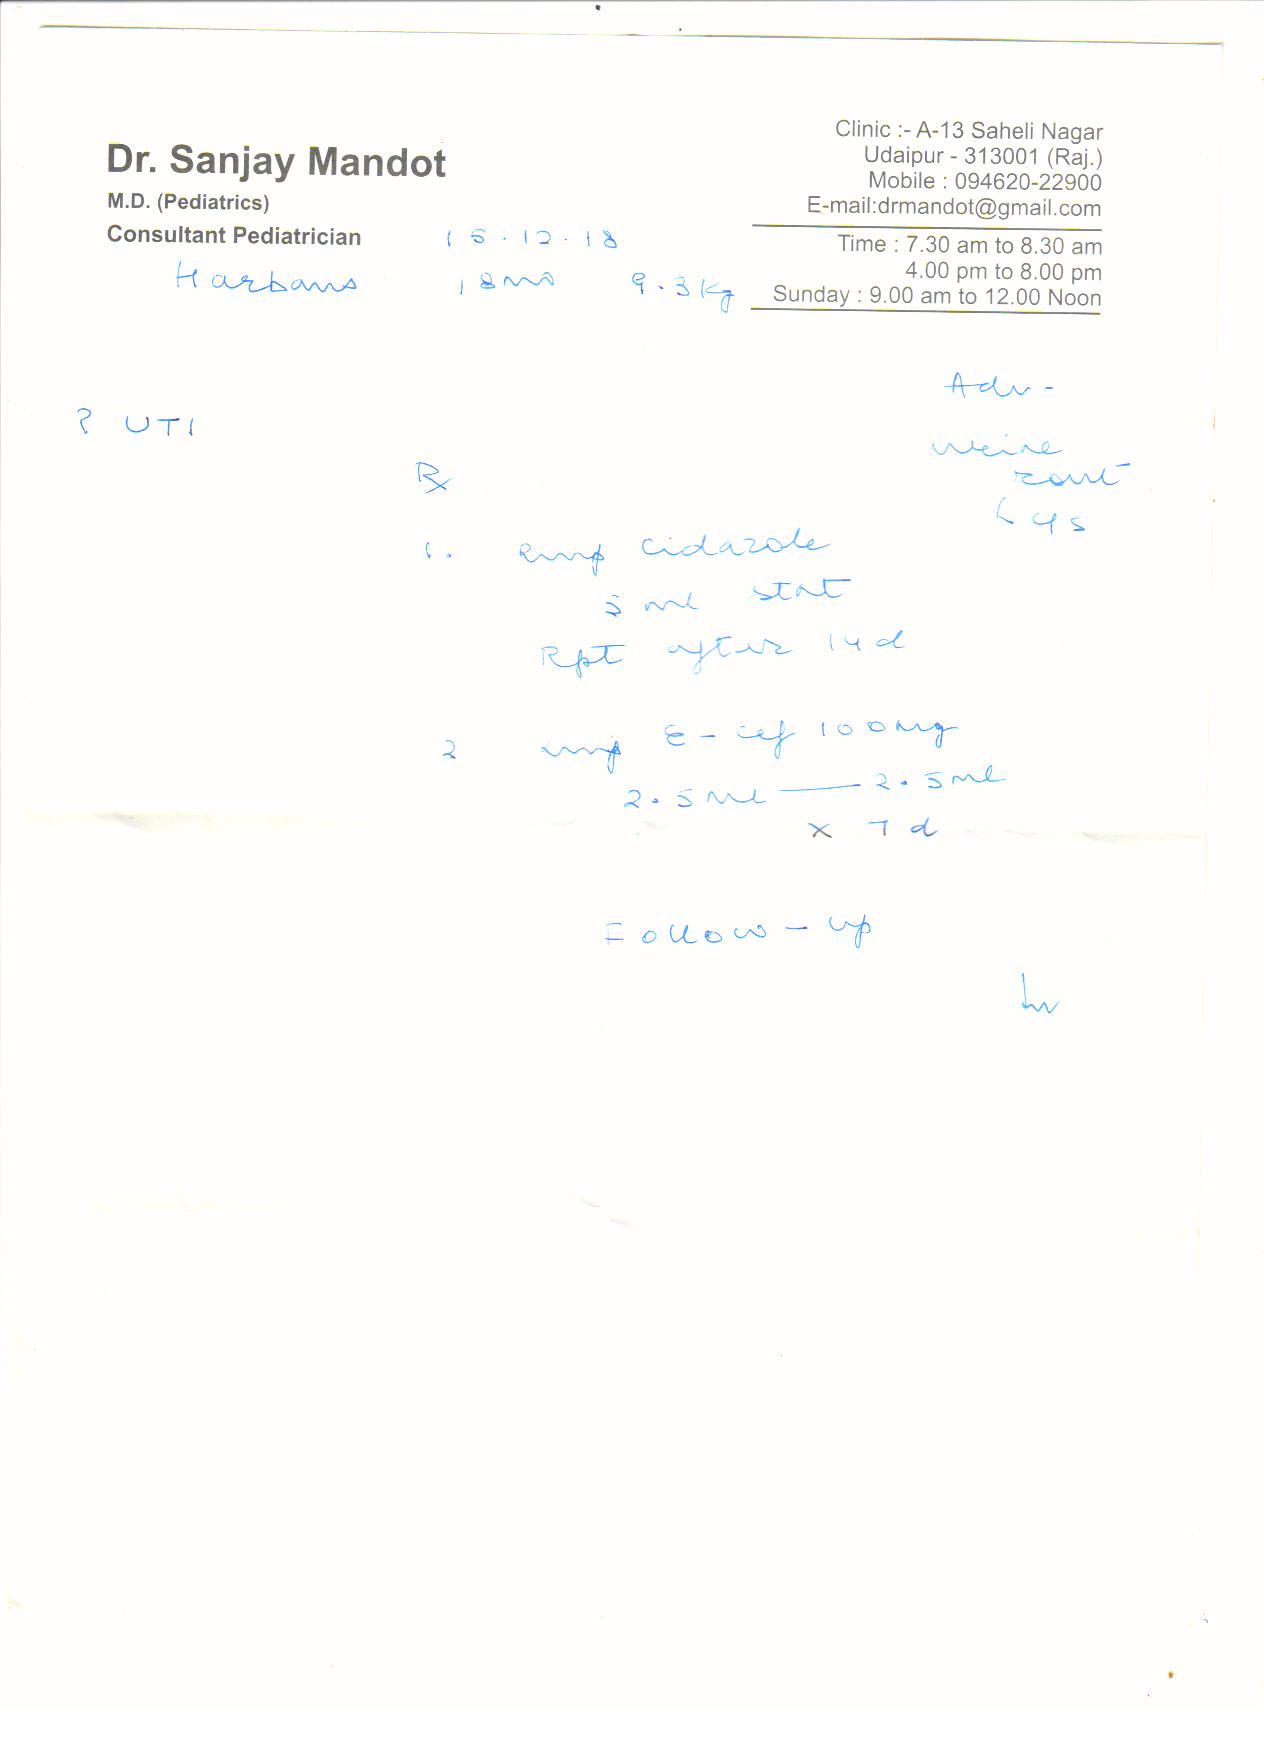 Dr. Sanjay Mandot
M.D. (Pediatrics)
Consultant Pediatrician
Clinic :- A-13 Saheli Nagar
Udaipur - 313001 (Raj.)
Mobile : 094620-22900
E-mail:drmandot@gmail.com
Time : 7.30 am to 8.30 am
4.00 pm to 8.00 pm
Sunday : 9.00 am to 12.00 Noon
15.12.18
Harbans 18mo 9.3kg
Adv -
Urine
rout
? UTI
Rx
1. cidazole
5 ml stat
Rpt after 14 d
2 E-cef 100mg
2.5ml — 2.5ml
x 7 d
Follow-up